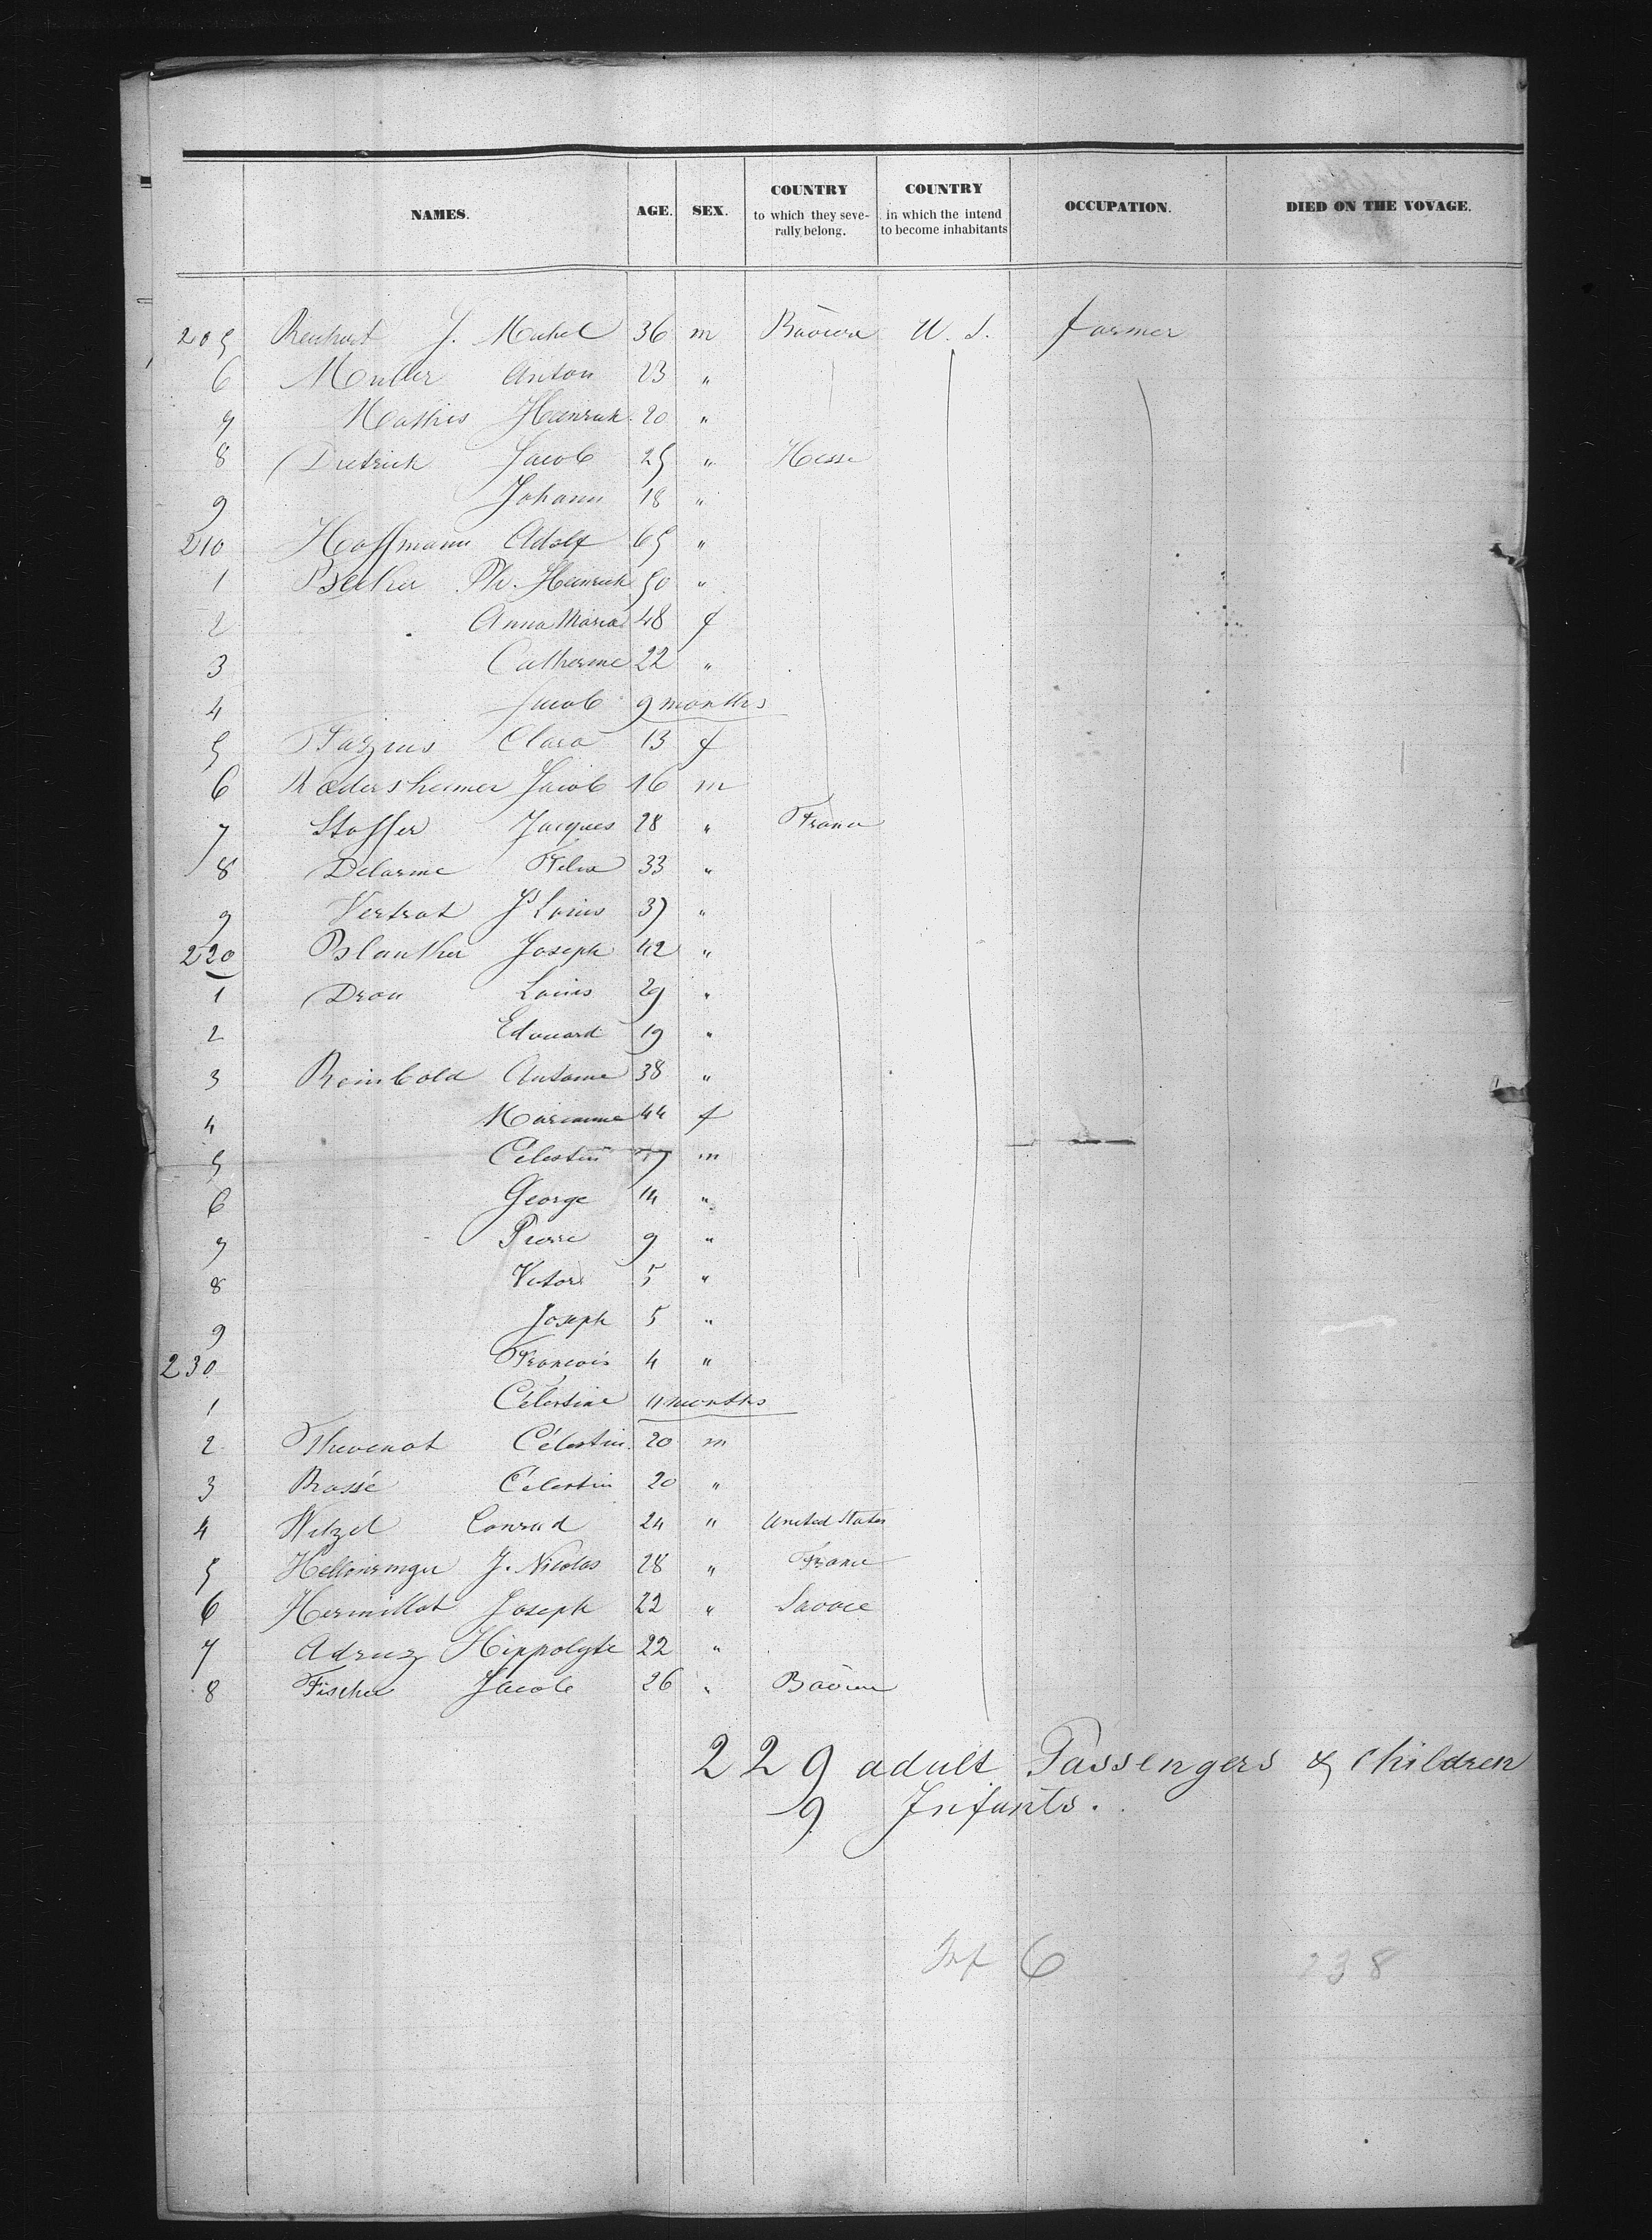 NAMES. AGE. SEX. COUNTRY to which they seve-rally belong. COUNTRY in which the intend to become inhabitants OCCUPATION. DIED ON THE VOYAGE.
205 J. Michel 36 m Bavière U. S. farmer
6 Muller Anton 23 "
7 Mathis Heinrich 20 "
8 Dietrich Jacob 25 " Hesse
9 Johann 18 "
210 Hoffmann Adolf 65 "
1 Becker Ph. Heinrich 50 "
2 Anna Maria 48 f
3 Catherine 22 "
4 Jacob 9 months
5 Clara 13 f
6 Jacob 16 m
7 Stoffer Jacques 28 " France
8 Delarme Felix 33 "
9 Vertrat Js Louis 37 "
220 Joseph 42 "
1 Drou Louis 29 "
2 Edouard 19 "
3 Reinbold Antoine 38 "
4 Marianne 44 f
5 Célestin 17 m
6 George 14 "
7 Pierre 9 "
8 Victor 5 "
9 Joseph 5 "
230 Francois 4 "
1 Célestine 11 months
2 Thevenot Célestin 20 m
3 Brassé Célestin 20 "
4 Witzel Conrad 24 " United States
5 J. Nicolas 28 " France
6 Hermillot Joseph 22 " Savoie
7 Adruz Hippolyte 22 "
8 Fischer Jacob 26 " Bavière
229 adult Passengers & children
9 Infants.
Inf 6 238